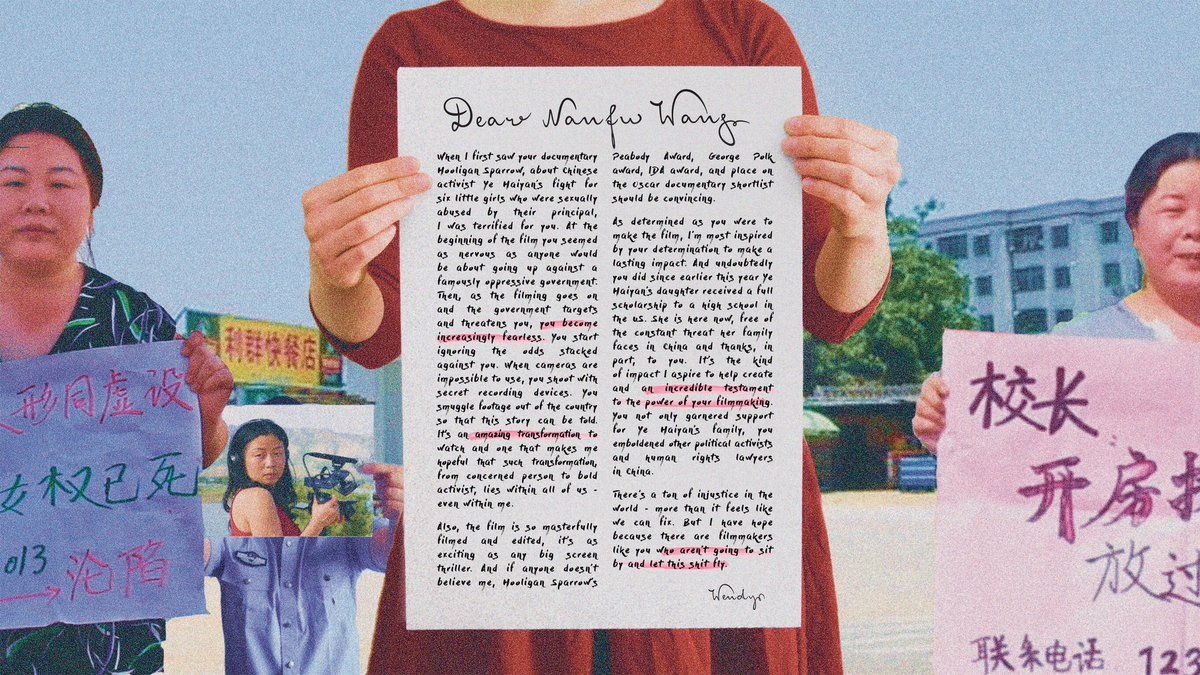 Dear Nanfu Wang
When I first saw your documentary
Hooligan Sparrow, about Chinese
activist Ye Haiyan's fight for
six little girls who were sexually
abused by their principal,
I was terrified for you. At the
beginning of the film you seemed
as nervous as anyone would
be about going up against a
famously oppressive government.
Then, as the filming goes on
and the government targets
and threatens you, you become
increasingly fearless. You start
ignoring the odds stacked
against you. When cameras are
impossible to use, you shoot with
secret recording devices. You
smuggle footage out of the country
so that this story can be told.
It's an amazing transformation to
watch and one that makes me
hopeful that such transformation,
from concerned person to bold
activist, lies within all of us -
even within me.
Also, the film is so masterfully
filmed and edited, it's as
exciting as any big screen
thriller. And if anyone doesn't
believe me, Hooligan Sparrow's
Peabody Award, George Polk
award, IDA award, and place on
the Oscar documentary shortlist
should be convincing.
As determined as you were to
make the film, I'm most inspired
by your determination to make a
lasting impact. And undoubtedly
you did since earlier this year Ye
Haiyan's daughter received a full
scholarship to a high school in
the US. She is here now, free of
the constant threat her family
faces in China and thanks, in
part, to you. It's the kind
of impact I aspire to help create
and an incredible testament
to the power of your filmmaking.
You not only garnered support
for Ye Haiyan's family, you
emboldened other political activists
and human rights lawyers
in China.
There's a ton of injustice in the
world - more than it feels like
we can fix. But I have hope
because there are filmmakers
like you who aren't going to sit
by and let this shit fly.
Wendy
利群快餐店
形同虚设
女权已死
013
沦陷
校长
开房
放过
联系电话 123